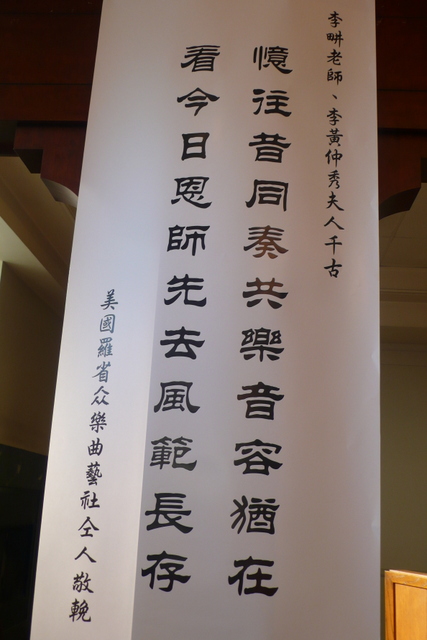 李畊老師、李黃仲秀夫人千古
憶往昔同奏共樂音容猶在
看今日恩師先去風範長存
美國羅省众樂曲藝社仝人敬輓